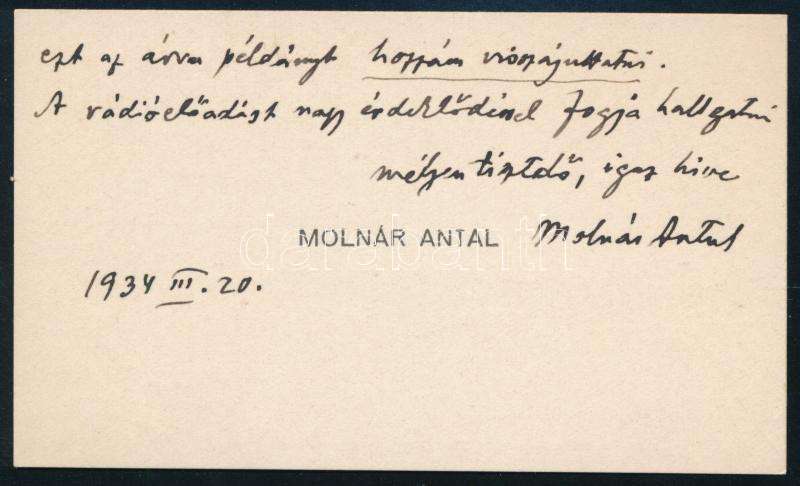 ezt az árva példányt hozzám visszajuttatni.
A rádióelőadást nagy érdeklődéssel fogja hallgatni
mélyen tisztelő, igaz híve
MOLNÁR ANTAL Molnár Antal
darabanth
1934 III. 20.